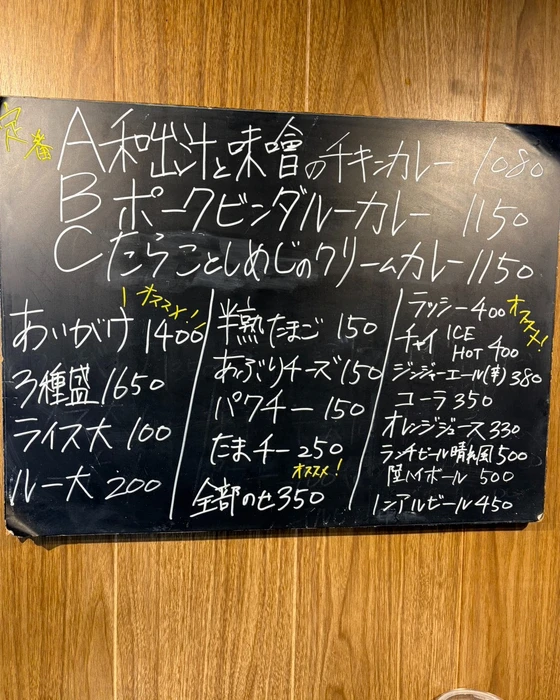 定番
A 和出汁と味噌のチキンカレー 1080
B ポークビンダルーカレー 1150
C たらことしめじのクリームカレー 1150
オススメ!
あいがけ 1400
3種盛 1650
ライス大 100
ルー大 200
半熟たまご 150
あぶりチーズ 150
パクチー 150
たまチー 250
オススメ!
全部のせ 350
ラッシー 400 オススメ!
チャイ ICE HOT 400
ジンジャーエール(辛) 380
コーラ 350
オレンジジュース 330
ランチビール晴れ風 500
陸ハイボール 500
ノンアルビール 450